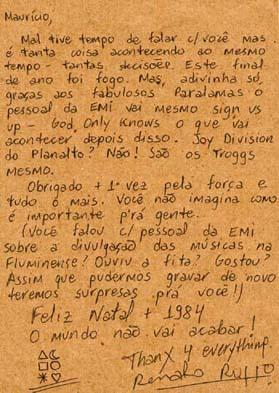 Maurício,
Mal tive tempo de falar c/ você mas
é tanta coisa acontecendo ao mesmo
tempo - tantas decisões. Este final
de ano foi fogo. Mas, adivinha só,
graças aos fabulosos Paralamas o
pessoal da EMI vai mesmo sign us
up - God Only Knows o que vai
acontecer depois disso. Joy Division
do Planalto? Não! São os Troggs
mesmo.
Obrigado + 1ª vez pela força e
tudo o mais. Você não imagina como
é importante p'rá gente.
(Você falou c/ pessoal da EMI
sobre a divulgação das músicas na
Fluminense! Ouviu a fita? Gostou?
Assim que pudermos gravar de novo
teremos surpresas prá você!!)
Feliz Natal + 1984
O mundo não vai acabar!
Thanx 4 everything.
Renato Russo